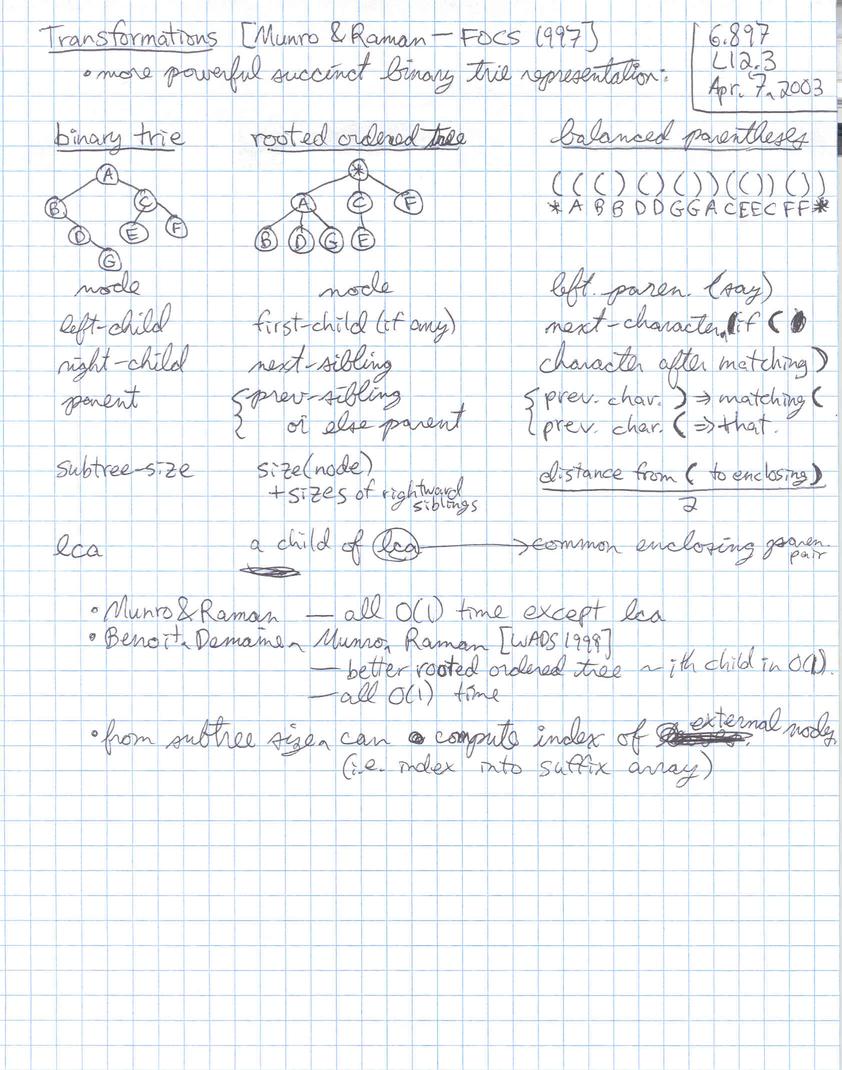 Transformations [Munro & Raman — FOCS 1997]
• more powerful succinct binary trie representation:
6.897
L12.3
Apr. 7, 2003
binary trie rooted ordered tree balanced parentheses
A
B C
D E F
G
*
A C F
B D G E
( ( ( ) ( ) ( ) ) ( ( ) ) ( ) )
* A B B D D G G A C E E C F F *
node node left paren. (say)
left-child first-child (if any) next-character, if (
right-child next-sibling character after matching )
parent { prev-sibling { prev. char. ) ⇒ matching (
or else parent prev. char. ( ⇒ that.
subtree-size size(node) distance from ( to enclosing )
+ sizes of rightward siblings 2
lca a child of lca → common enclosing paren. pair
• Munro & Raman — all O(1) time except lca
• Benoit, Demaine, Munro, Raman [WADS 1999]
— better rooted ordered tree ~ ith child in O(1).
— all O(1) time
• from subtree size, can compute index of external node,
(i.e. index into suffix array)